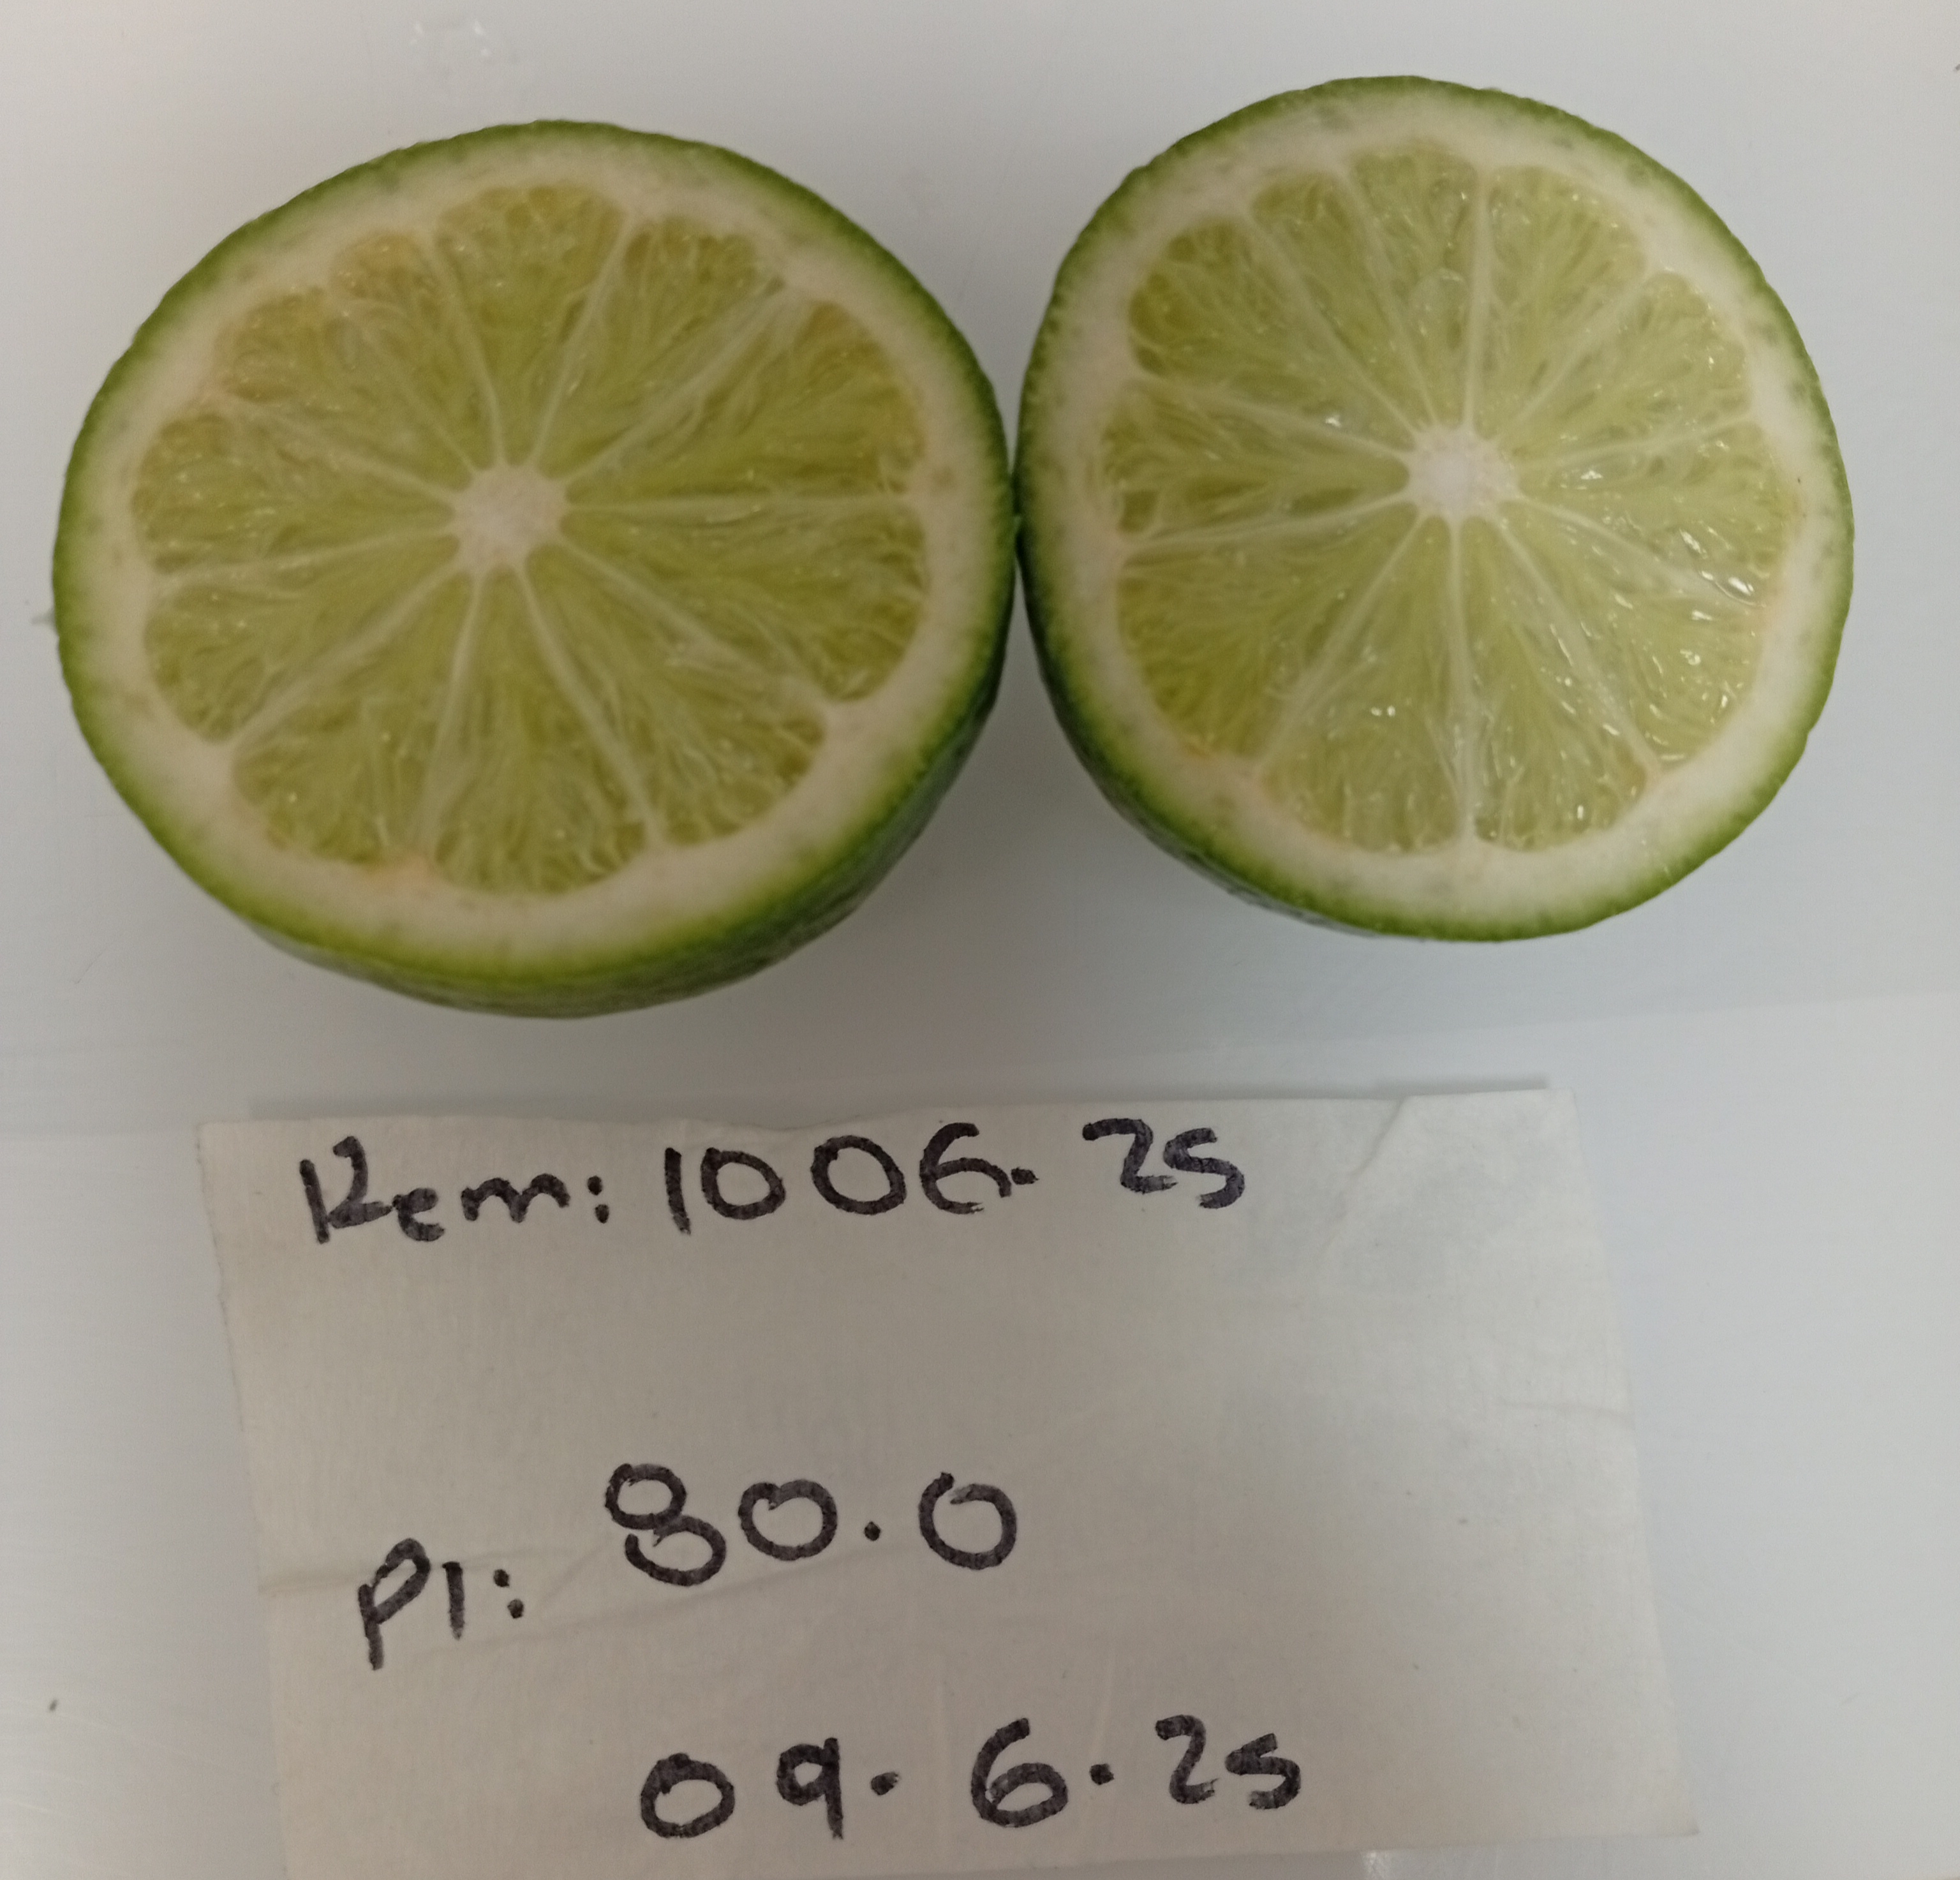 Rem: 1006.25
P1: 80.0
09.6.25